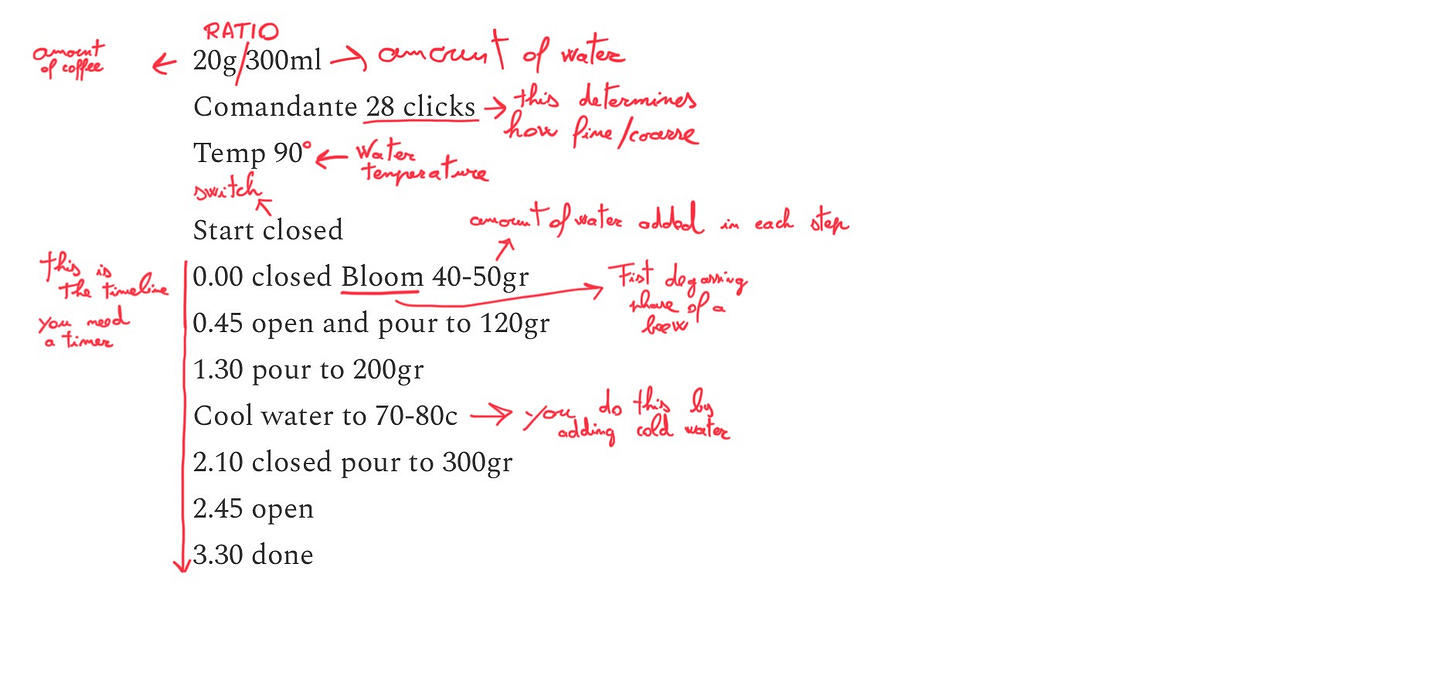 RATIO
amount
of coffee
20g/300ml
amount of water
Comandante 28 clicks
this determines
how fine/coarse
Temp 90°
Water
temperature
switch
Start closed
amount of water added in each step
this is
the timeline
you need
a timer
0.00 closed Bloom 40-50gr
Fist degassing
phase of a
brew
0.45 open and pour to 120gr
1.30 pour to 200gr
Cool water to 70-80c
you do this by
adding cold water
2.10 closed pour to 300gr
2.45 open
3.30 done